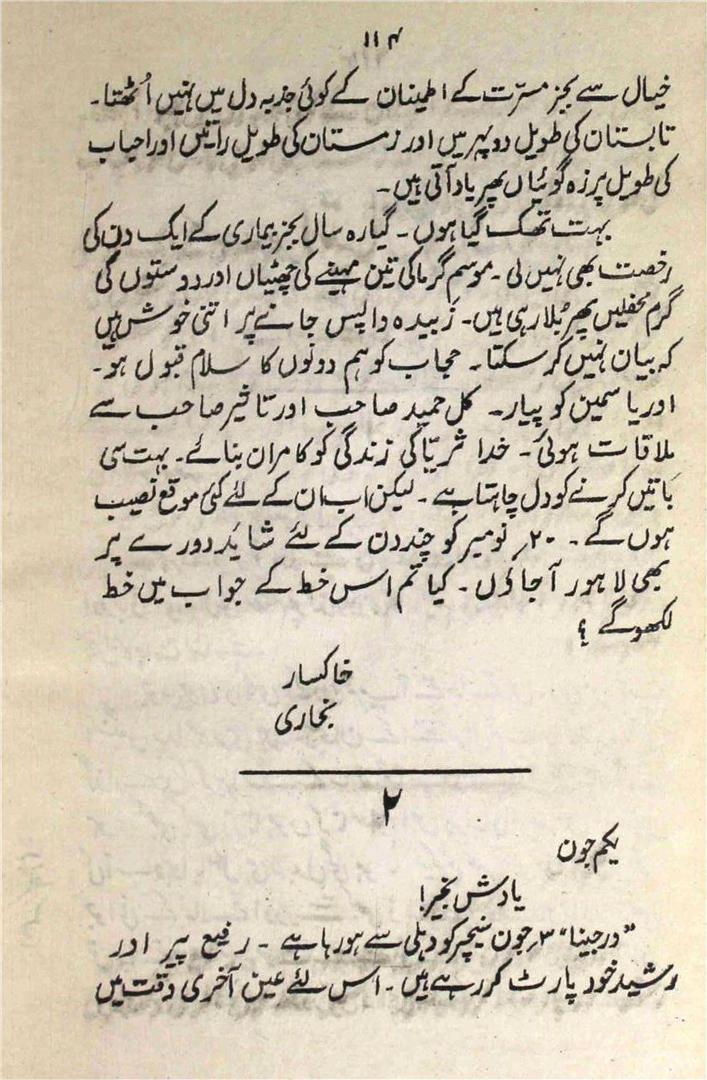 ۱۱۴
خیال سے بجز مسرّت کے اطمینان کے کوئی جذبہ دل میں نہیں اُٹھتا۔
تابستان کی طویل دوپہریں اور زمستان کی طویل راتیں اور احباب
کی طویل ہرزہ گوئیاں پھر یاد آتی ہیں۔
بہت تھک گیا ہوں۔ گیارہ سال بجز بیماری کے ایک دن کی
رخصت بھی نہیں لی۔ موسم گرما کی تین مہینے کی چھٹیاں اور دوستوں کی
گرم محفلیں پھر بُلا رہی ہیں۔ زبیدہ واپس جانے پر اتنی خوش ہیں
کہ بیان نہیں کر سکتا۔ حجاب کو ہم دونوں کا سلام قبول ہو۔
اور یاسمین کو پیار۔ کل حمید صاحب اور تاثیر صاحب سے
ملاقات ہوئی۔ خدا ثریّا کی زندگی کو کامران بنائے۔ بہت سی
باتیں کرنے کو دل چاہتا ہے۔ لیکن اب ان کے لئے کئی موقع نصیب
ہوں گے۔ ۲۰ نومبر کو چند دن کے لئے شاید دورے پر
بھی لاہور آجاؤں۔ کیا تم اس خط کے جواب میں خط
لکھو گے ؟
خاکسار
بخاری
۲
یکم جون
یادش بخیر!
"ورجینا" ۳ جون سنیچر کو دہلی سے ہو رہا ہے۔ رفیع پیر اور
رشید خود پارٹ کر رہے ہیں۔ اس لئے عین آخری وقت میں